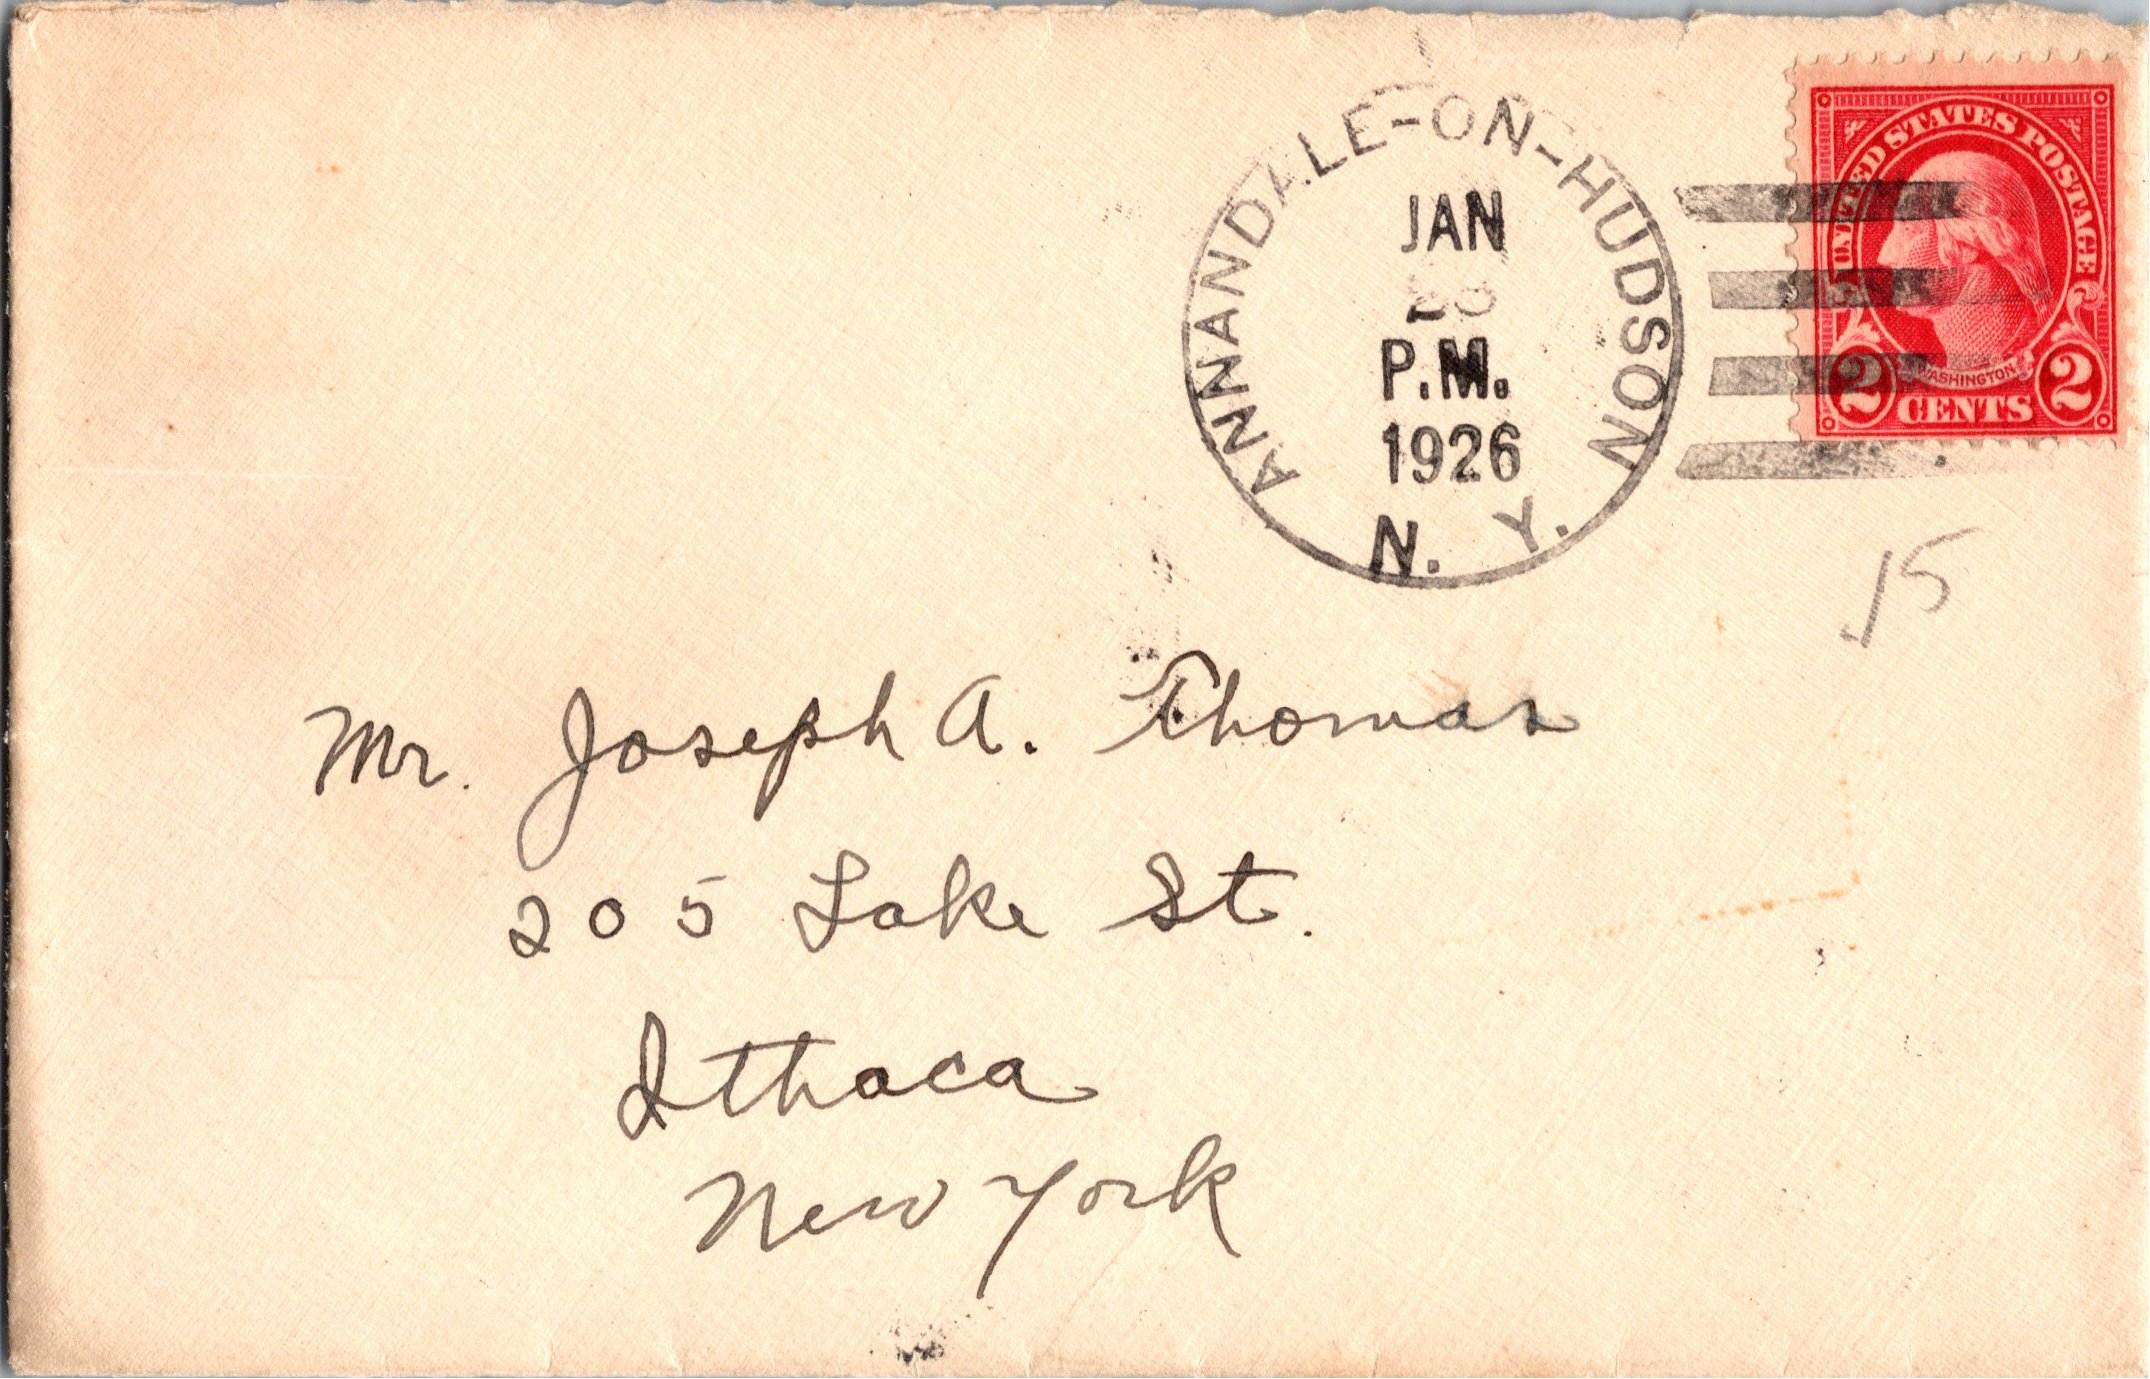 ANNANDALE-ON-HUDSON
JAN
P.M.
1926
N. Y.
UNITED STATES POSTAGE
WASHINGTON
2 CENTS 2
15
Mr. Joseph A. Thomas
205 Lake St.
Ithaca
New York